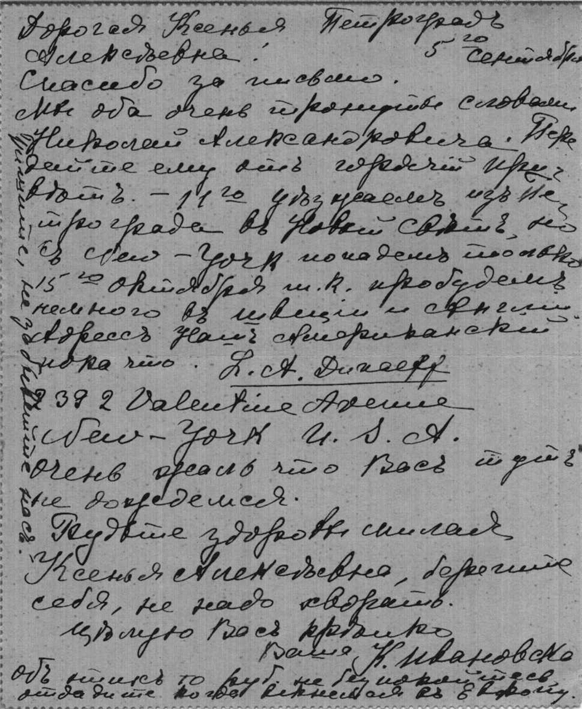 Дорогая Ксенья Петроградъ
Алексѣевна! 5го сентября
Спасибо за письмо.
Мы оба очень тронуты словами
Николай Александровича. Пере
дайте ему отъ горячій при
вѣтъ. – 11го уѣзжаемъ изъ Пе
трограда въ Новый Свѣтъ, но
въ New-York попадемъ только
15го октября т.к. пробудемъ
немного въ Швеціи и Англіи.
Адрессъ нашъ Американскій
пока что. L. A. Dunaeff
2392 Valentine Avenue
New-York U. S. A.
очень жаль что Васъ тутъ
не дождемся.
Будьте здоровы милая
Ксенья Алексѣевна, берегите
себя, не надо хворать.
Цѣлую Васъ крѣпко
Ваша К. Ивановска
объ этихъ 10 руб. не безпокойтесь
отдадите когда вернемся въ Европу.
пишите, не забывайте насъ.